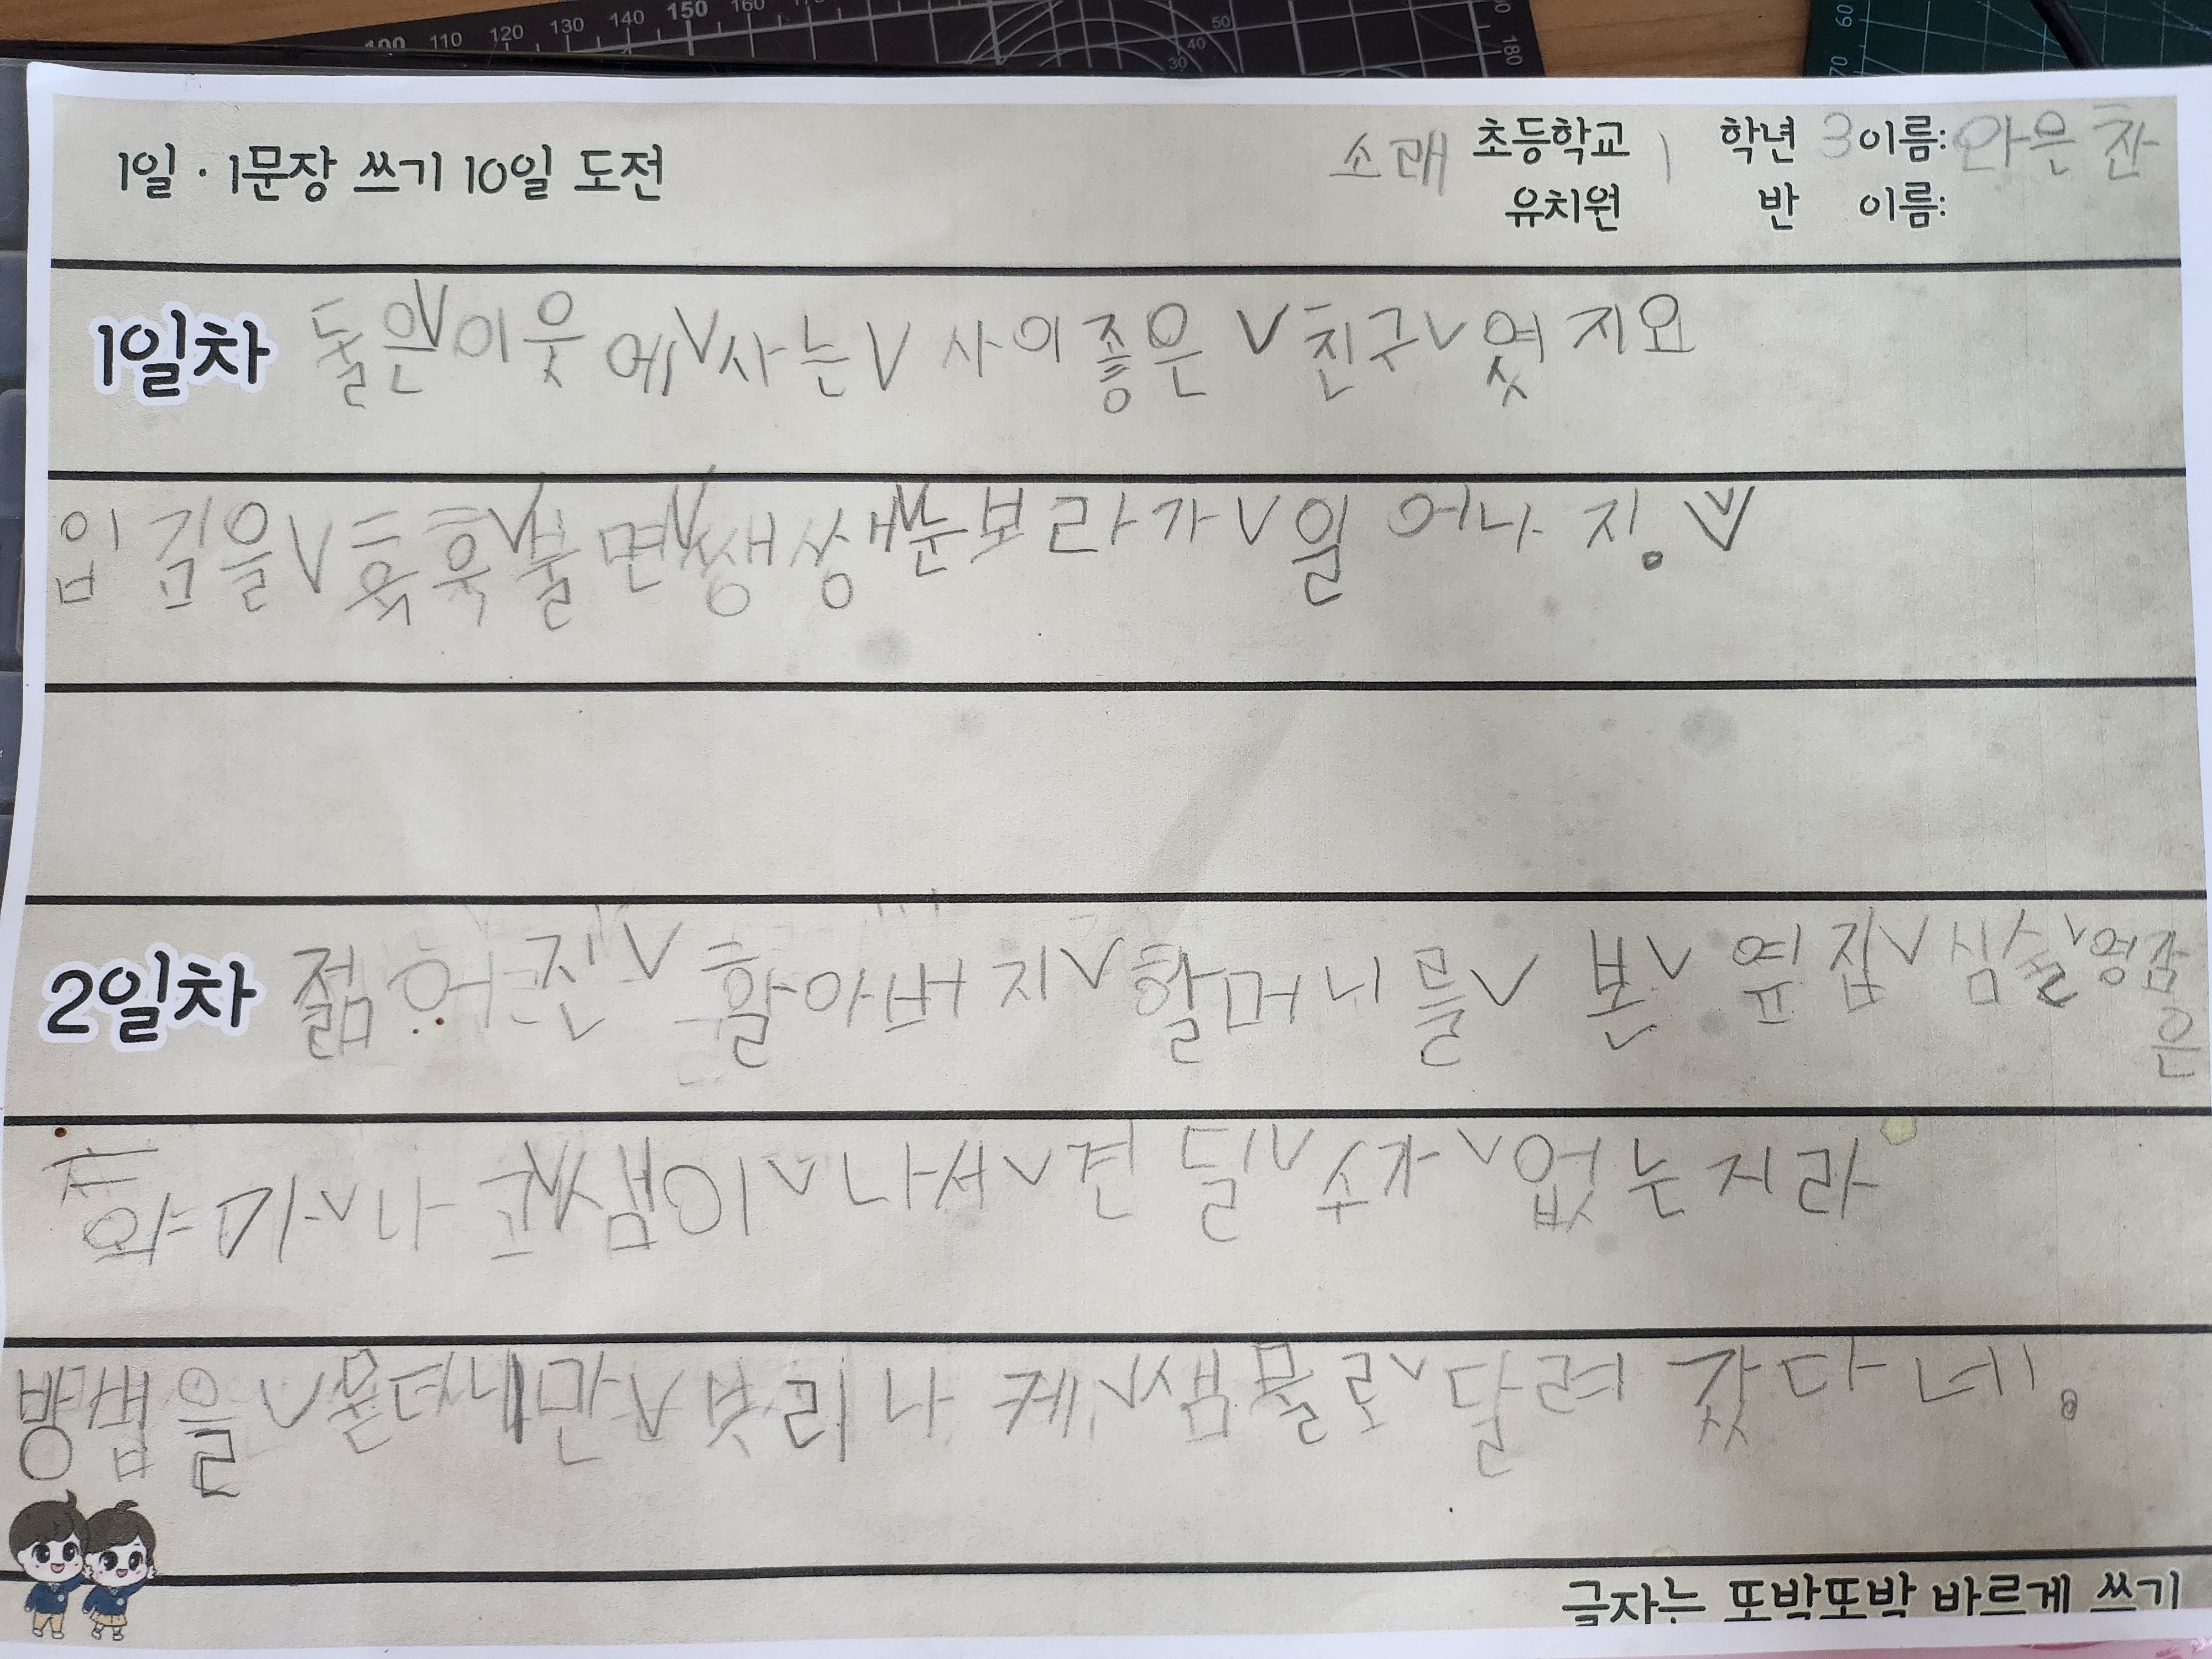 100 110 120 130 140 150 160
50 40 30 180 60 70
1일·1문장 쓰기 10일 도전 소래 초등학교 1 학년 3 이름: 안은찬
유치원 반 이름:
1일차 둘은∨이웃에∨사는∨사이좋은∨친구∨였지요
입김을∨훅훅∨불면∨쌩쌩∨눈보라가∨일어나지.∨
2일차 젊어진∨할아버지∨할머니를∨본∨옆집∨심술∨영감은
화가∨나고∨샘이∨나서∨견딜∨수가∨없는지라
방법을∨묻더니만∨부리나케∨샘물로∨달려갔다네.
글자는 또박또박 바르게 쓰기